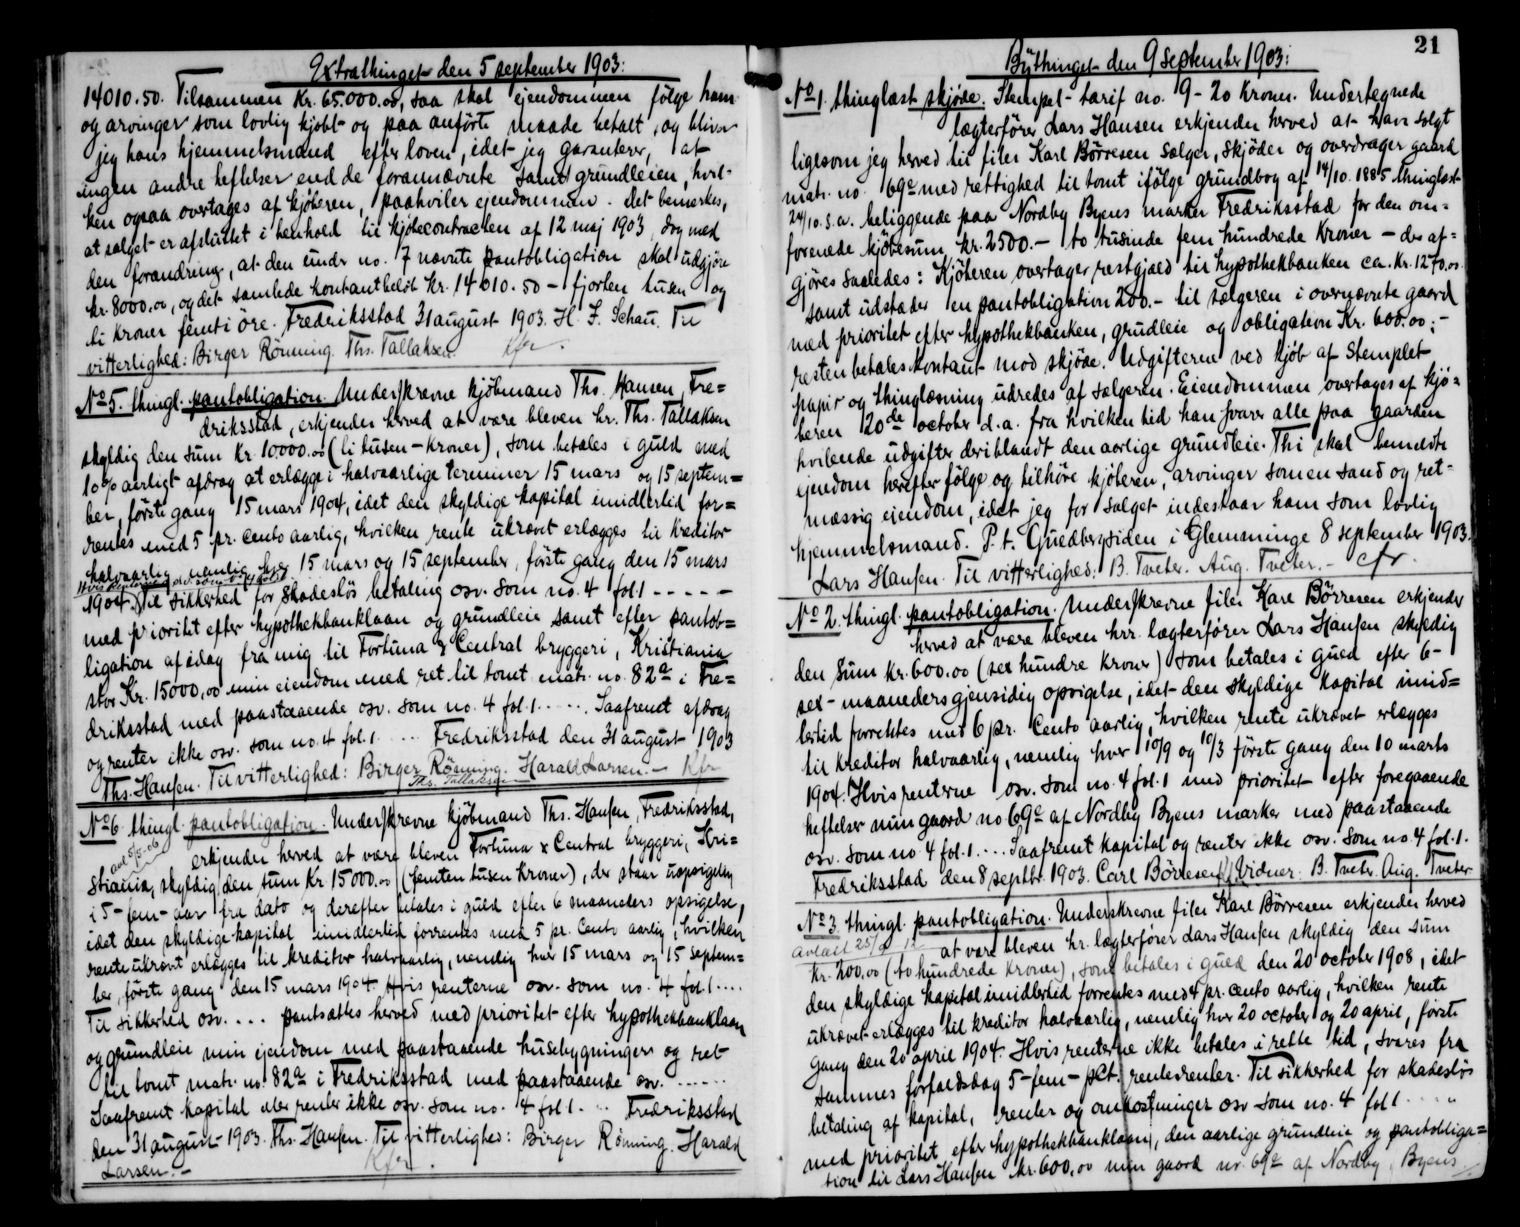 Extrathinget den 5 september 1903:
14010.50. Tilsammen Kr. 65.000.00, saa skal ejendommen følge ham
og arvinger som lovlig kjøbt og paa anførte maade betalt, og bliver
jeg hans hjemmelsmand efter loven, idet jeg garanterer, at
ingen andre heftelser end de forannævnte samt grundleien, hvil-
ken ogsaa overtages af kjøberen, paahviler ejendommen. Det bemerkes,
at salget er afsluttet i henhold til kjøbecontracten af 12 maj 1903, dog med
den forandring, at den under no. 7 nævnte pantobligation skal udgjøre
kr. 8000.00, og det samlede kontantbeløb kr. 14010.50 – fjorten tusen og
ti kroner femti öre. Fredriksstad 31 august 1903. H. F. Schau. Til
vitterlighed: Birger Rönning. Ths. Tallaksen. Kfr.
No 5. thingl. pantobligation. Underskrevne kjøbmand Ths. Hansen, Fre=
driksstad, erkjender herved at være bleven hr. Ths. Tallaksen
skyldig den sum Kr. 10000.00 (ti tusen – kroner), som betales i guld med
10% aarligt afdrag at erlægge i halvaarlige terminer 15 mars og 15 septem=
ber, förste gang 15 mars 1904, idet den skyldige kapital imidlertid for=
rentes med 5 pr. cento aarlig, hvilken rente ukrævet erlægges til kreditor
halvaarlig, nemlig hver 15 mars og 15 september, förste gang den 15 mars
Hvis renterne osv. som
1904. Til sikkerhed for skadeslös betaling osv. som no. 4 fol. 1 - - - - -
med prioritet efter hypothekbanklaan og grundleie samt efter pantob=
ligation af idag fra mig til Fortuna & Central bryggeri, Kristiania
stor Kr. 15000,00 min eiendom med ret til tomt matr. no. 82a i Fre=
driksstad med paastaaende osv. som no. 4 fol. 1 ..... Saafremt afdrag
og renter ikke osv. som no. 4 fol. 1 .... Fredriksstad den 31 august 1903
Ths. Hansen. Til vitterlighed: Birger Rönning. Harald Larsen. – Kfr
Ths. Tallaksen
No 6. thingl. pantobligation. Underskrevne kjøbmand Ths. Hansen, Fredriksstad,
erkjender herved at være bleven Fortuna & Central bryggeri, Kri-
stiania, skyldig den sum Kr 15000.00 (femten tusen kroner), der staar uopsigelig
i 5 – fem – aar fra dato og derefter betales i guld efter 6 maaneders opsigelse,
idet den skyldige kapital imidlertid forrentes med 5 pr. Cento aarlig, hvilken
rente ukrævt erlægges til kreditor halvaarlig, nemlig hver 15 mars og 15 septem=
ber, förste gang den 15 mars 1904. Hvis renterne osv. som no. 4 fol. 1 ....
Til sikkerhed osv. .... pantsættes herved med prioritet efter hypothekbanklaan
og grundleie min ejendom med paastaaende husebygninger og ret
til tomt matr. no. 82a i Fredriksstad med paastaaende osv. ......
Saafremt kapital eller renter ikke osv. som no. 4 fol 1. .. Fredriksstad
den 31 august 1903. Ths. Hansen. Til vitterlighed: Birger Rönning. Harald
Larsen. – Kfr.
21
Bythinget den 9 september 1903:
No 1. thinglæst skjøde. Stempel-tarif no. 9 – 20 kroner. Undertegnede
lægterfører Lars Hansen erkjender herved at have solgt
ligesom jeg herved til filer Karl Børresen sælger, skjøder og overdrager gaard
matr. no. 69c med rettighed til tomt ifølge grundbog af 14/10.1885 thinglæst
24/10. s. a. beliggende paa Nordby Byens marker Fredriksstad for den om=
forenede kjøbesum kr. 2500.– to tusinde fem hundrede kroner – der af=
gjøres saaledes: Kjøberen overtager restgjæld til hypothekbanken ca. kr. 1270.00
samt udsteder en pantobligation 200.– til sælgeren i overnævnte gaard
med prioritet efter hypothekbanken, grundleie og obligation Kr. 600.00; –
resten betales kontant mod skjøde. Udgifterne ved kjøb af stemplet
papir og thinglæsning udredes af sælgeren. Eiendommen overtages af kjø=
beren 20de october d.a. fra hvilken tid han svarer alle paa gaarden
hvilende udgifter deriblandt den aarlige grundleie. Thi skal bemeldte
ejendom herefter følge og tilhöre kjøberen, arvinger som en sand og ret-
mæssig eiendom, idet jeg for salget indestaar ham som lovlig
hjemmelsmand. P. t. Guedbergsiden i Glemminge 8 september 1903.
Lars Hansen. Til vitterlighed: B. Tveter. Aug. Tveter. – Cfr.
No 2. thingl. pantobligation. Underskrevne filer Karl Börresen erkjender
herved at være bleven hrr. lægterfører Lars Hansen skyldig
den sum kr. 600.00 (sex hundre kroner) som betales i guld efter 6 –
sex – maaneders gjensidig opsigelse, idet den skyldige kapital imid=
lertid forrentes med 6 pr. Cento aarlig, hvilken rente ukrævet erlægges
til kreditor halvaarlig, nemlig hver 10/9 og 10/3 förste gang den 10 marts
1904. Hvis renterne osv. som no. 4 fol. 1 med prioritet efter foregaaende
heftelser min gaard no 69c af Nordby Byens marker med paastaaende
osv. som no. 4 fol. 1 .... Saafremt kapital og renter ikke osv. som no. 4 fol. 1.
Fredriksstad den 8 septbr. 1903. Carl Børresen. Vidner: B. Tveter. Aug. Tveter
No 3. thingl. pantobligation. Underskrevne filer Karl Børresen erkjender herved
at være bleven hr. lægterfører Lars Hansen skyldig den sum
kr. 200,00 (to hundrede kroner), som betales i guld den 20 october 1908, idet
den skyldige kapital imidlertid forrentes med 4 pr. cento aarlig, hvilken rente
ukrævet erlægges til kreditor halvaarlig, nemlig hver 20 october og 20 april, förste
gang den 20 april 1904. Hvis renterne ikke betales i rette tid, svares fra
sammes forfaldsdag 5 – fem – pct. rentesrenter. Til sikkerhed for skadeslös
betaling af kapital, renter og omkostninger osv som no. 4 fol 1 ....
med prioritet efter hypothekbanklaan, den aarlige grundleie og pantobliga=
tion til Lars Hansen kr. 600,00 min gaard nr. 69c af Nordby Byens